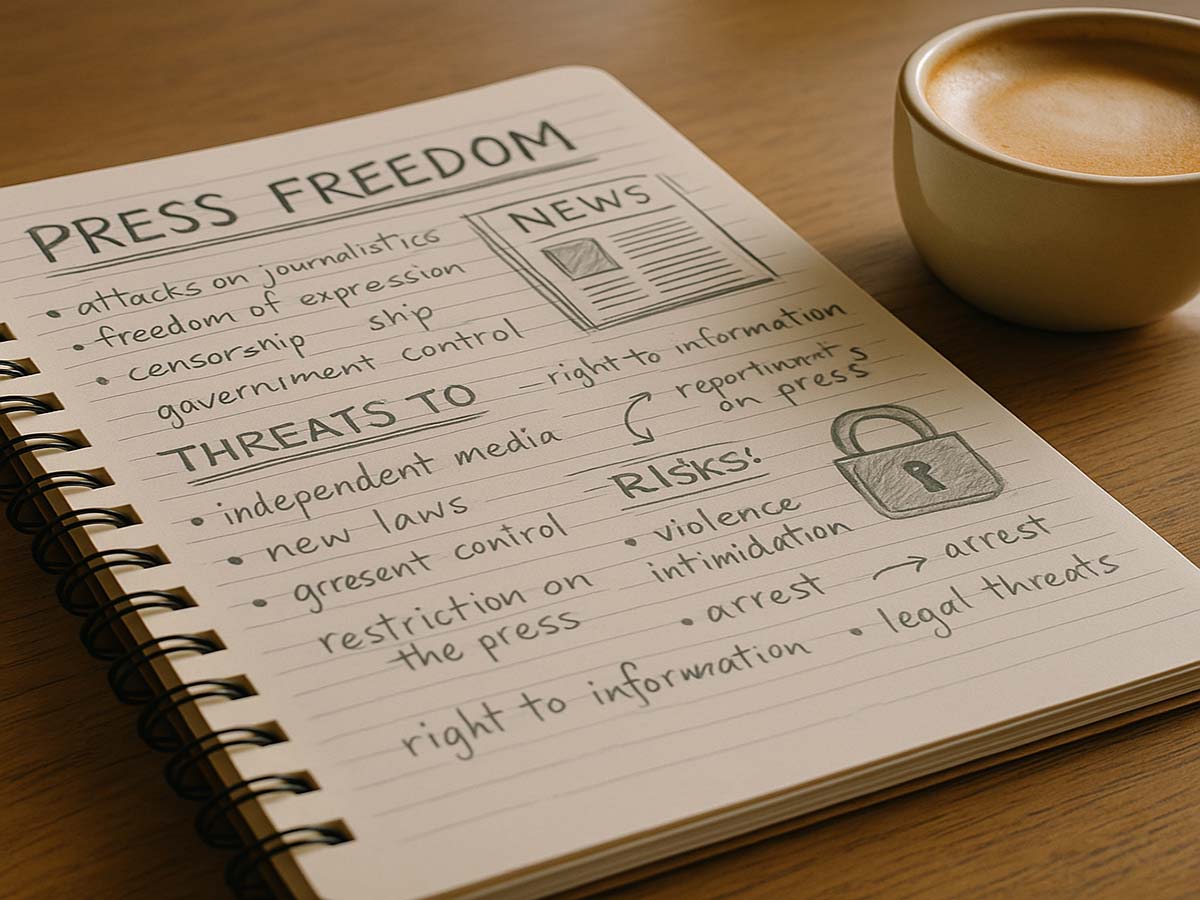 PRESS FREEDOM
NEWS
• attacks on journalistics
• freedom of expression
• censorship ship
gavernıment control
– right to information
reportinırat s
on press
THREATS TO
• independent media
• new laws
• grresent control
restriction on
the press
right to information
RISKS:
• violence
intimidation
• arrest → arrest
• legal threats